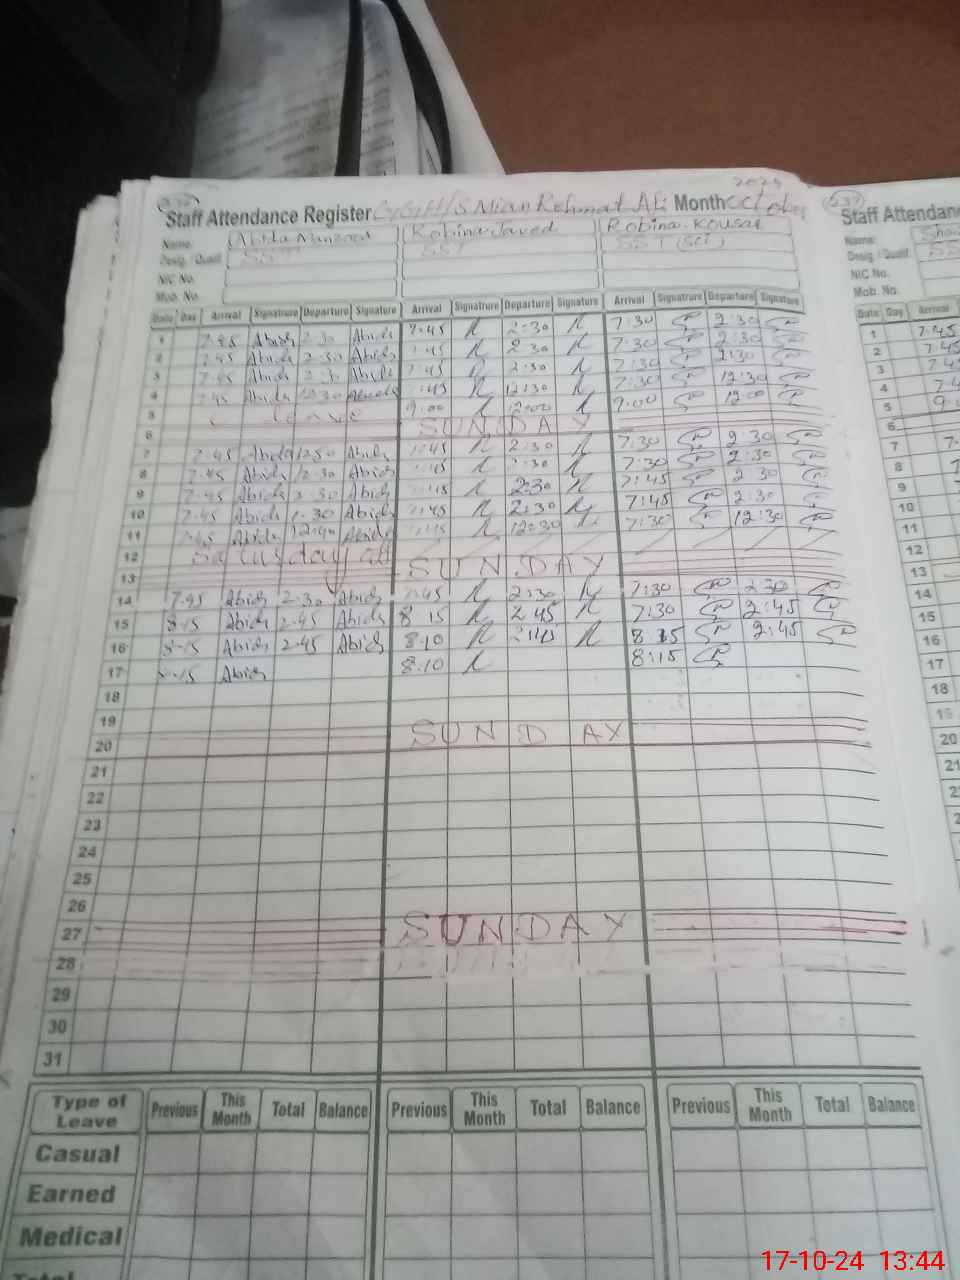 2024
Staff Attendance Register GGHS Mian Rehmat Ali Month October
Staff Attendan
Name: Abida Manzoor Robina Javed Robina Kousar
Name:
Desig. / Qualif. SST SST SST (Sci)
Desig. / Qualif.
NIC No.
NIC No.
Mob. No.
Mob. No.
Date Day Arrival Signatrure Departure Signature Arrival Signatrure Departure Signatrure Arrival Signatrure Departure Signatrure
Date Day Arrival
1 7.45 Abida 2.30 Abida 7:45 2:30 7:30 2:30
1 7.45
2 7.45 Abida 2.30 Abida :45 2:30 7:30 2:30
2 7.45
3 7.45 Abida 2.30 Abida :45 2:30 7:30 2:30
3 7.45
4 7.45 Abida 12.30 :45 12:30 7:30 12:30
4
5 Leave 9:00 12:00 9:00 12:00
5
6 SUNDAY
6
7 7.45 :45 2:30 7:30 2:30
7
8 7.45 Abida 2.30 Abida :45 :30 7:30 2:30
8
9 7.45 Abida 2.30 Abida :45 2:30 7:45 2:30
9
10 7.45 Abida 2.30 Abida :45 2:30 7:45 2:30
10
11 7.45 Abida 12:40 Abida :45 12:30 7:30 12:30
11
12 Saturday off
12
13 SUNDAY
13
14 7.45 Abida 2.30 Abida :45 2:30 7:30 2:30
14
15 8.15 Abida 2.45 Abida 8 15 2 45 7:30 2:45
15
16 8.15 Abida 2.45 Abida 8:10 8 15 2:45
16
17 8.15 Abida 8:10 8:15
17
18
18
19
20 SUNDAY
20
21
21
22
23
24
25
26
27 SUNDAY
28
29
30
31
Type of Leave Previous This Month Total Balance Previous This Month Total Balance Previous This Month Total Balance
Casual
Earned
Medical
Total
17-10-24 13:44